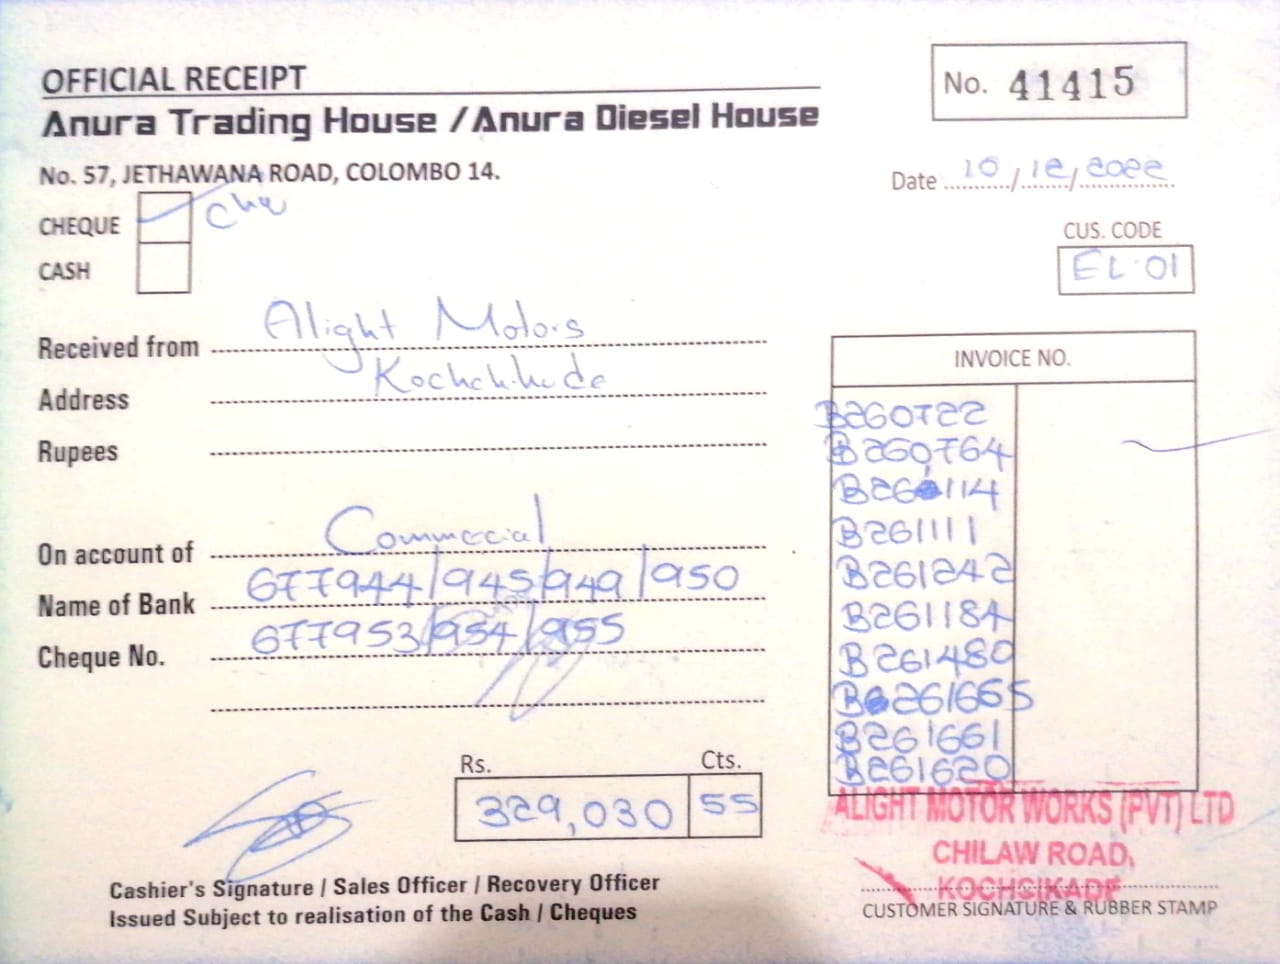 OFFICIAL RECEIPT
Anura Trading House / Anura Diesel House
No. 41415
No. 57, JETHAWANA ROAD, COLOMBO 14.
Date 10/12/2022
CHEQUE
CASH
CUS. CODE
EL 01
Received from Alight Motors
Address Kochchikade
Rupees
On account of Commercial
Name of Bank 677944/945/949/950
Cheque No. 677953/954/955
INVOICE NO.
B260722
B260764
B260114
B261111
B261242
B261184
B261480
B261665
B261661
B261620
Rs. Cts.
329,030 55
ALIGHT MOTOR WORKS (PVT) LTD
CHILAW ROAD,
KOCHCIKADE
Cashier's Signature / Sales Officer / Recovery Officer
Issued Subject to realisation of the Cash / Cheques
CUSTOMER SIGNATURE & RUBBER STAMP